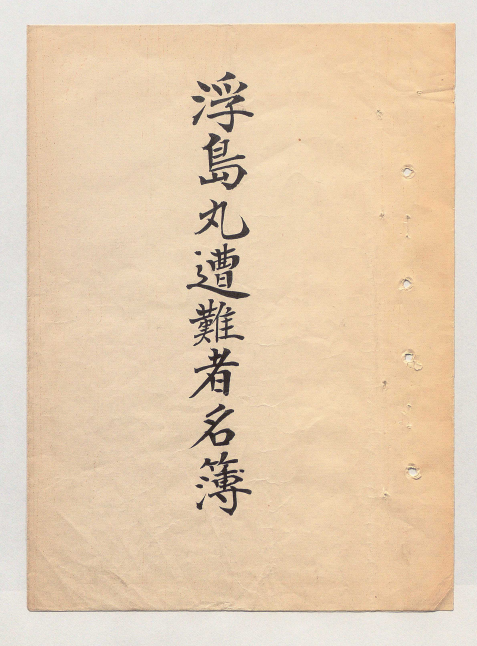 浮島丸遭難者名簿